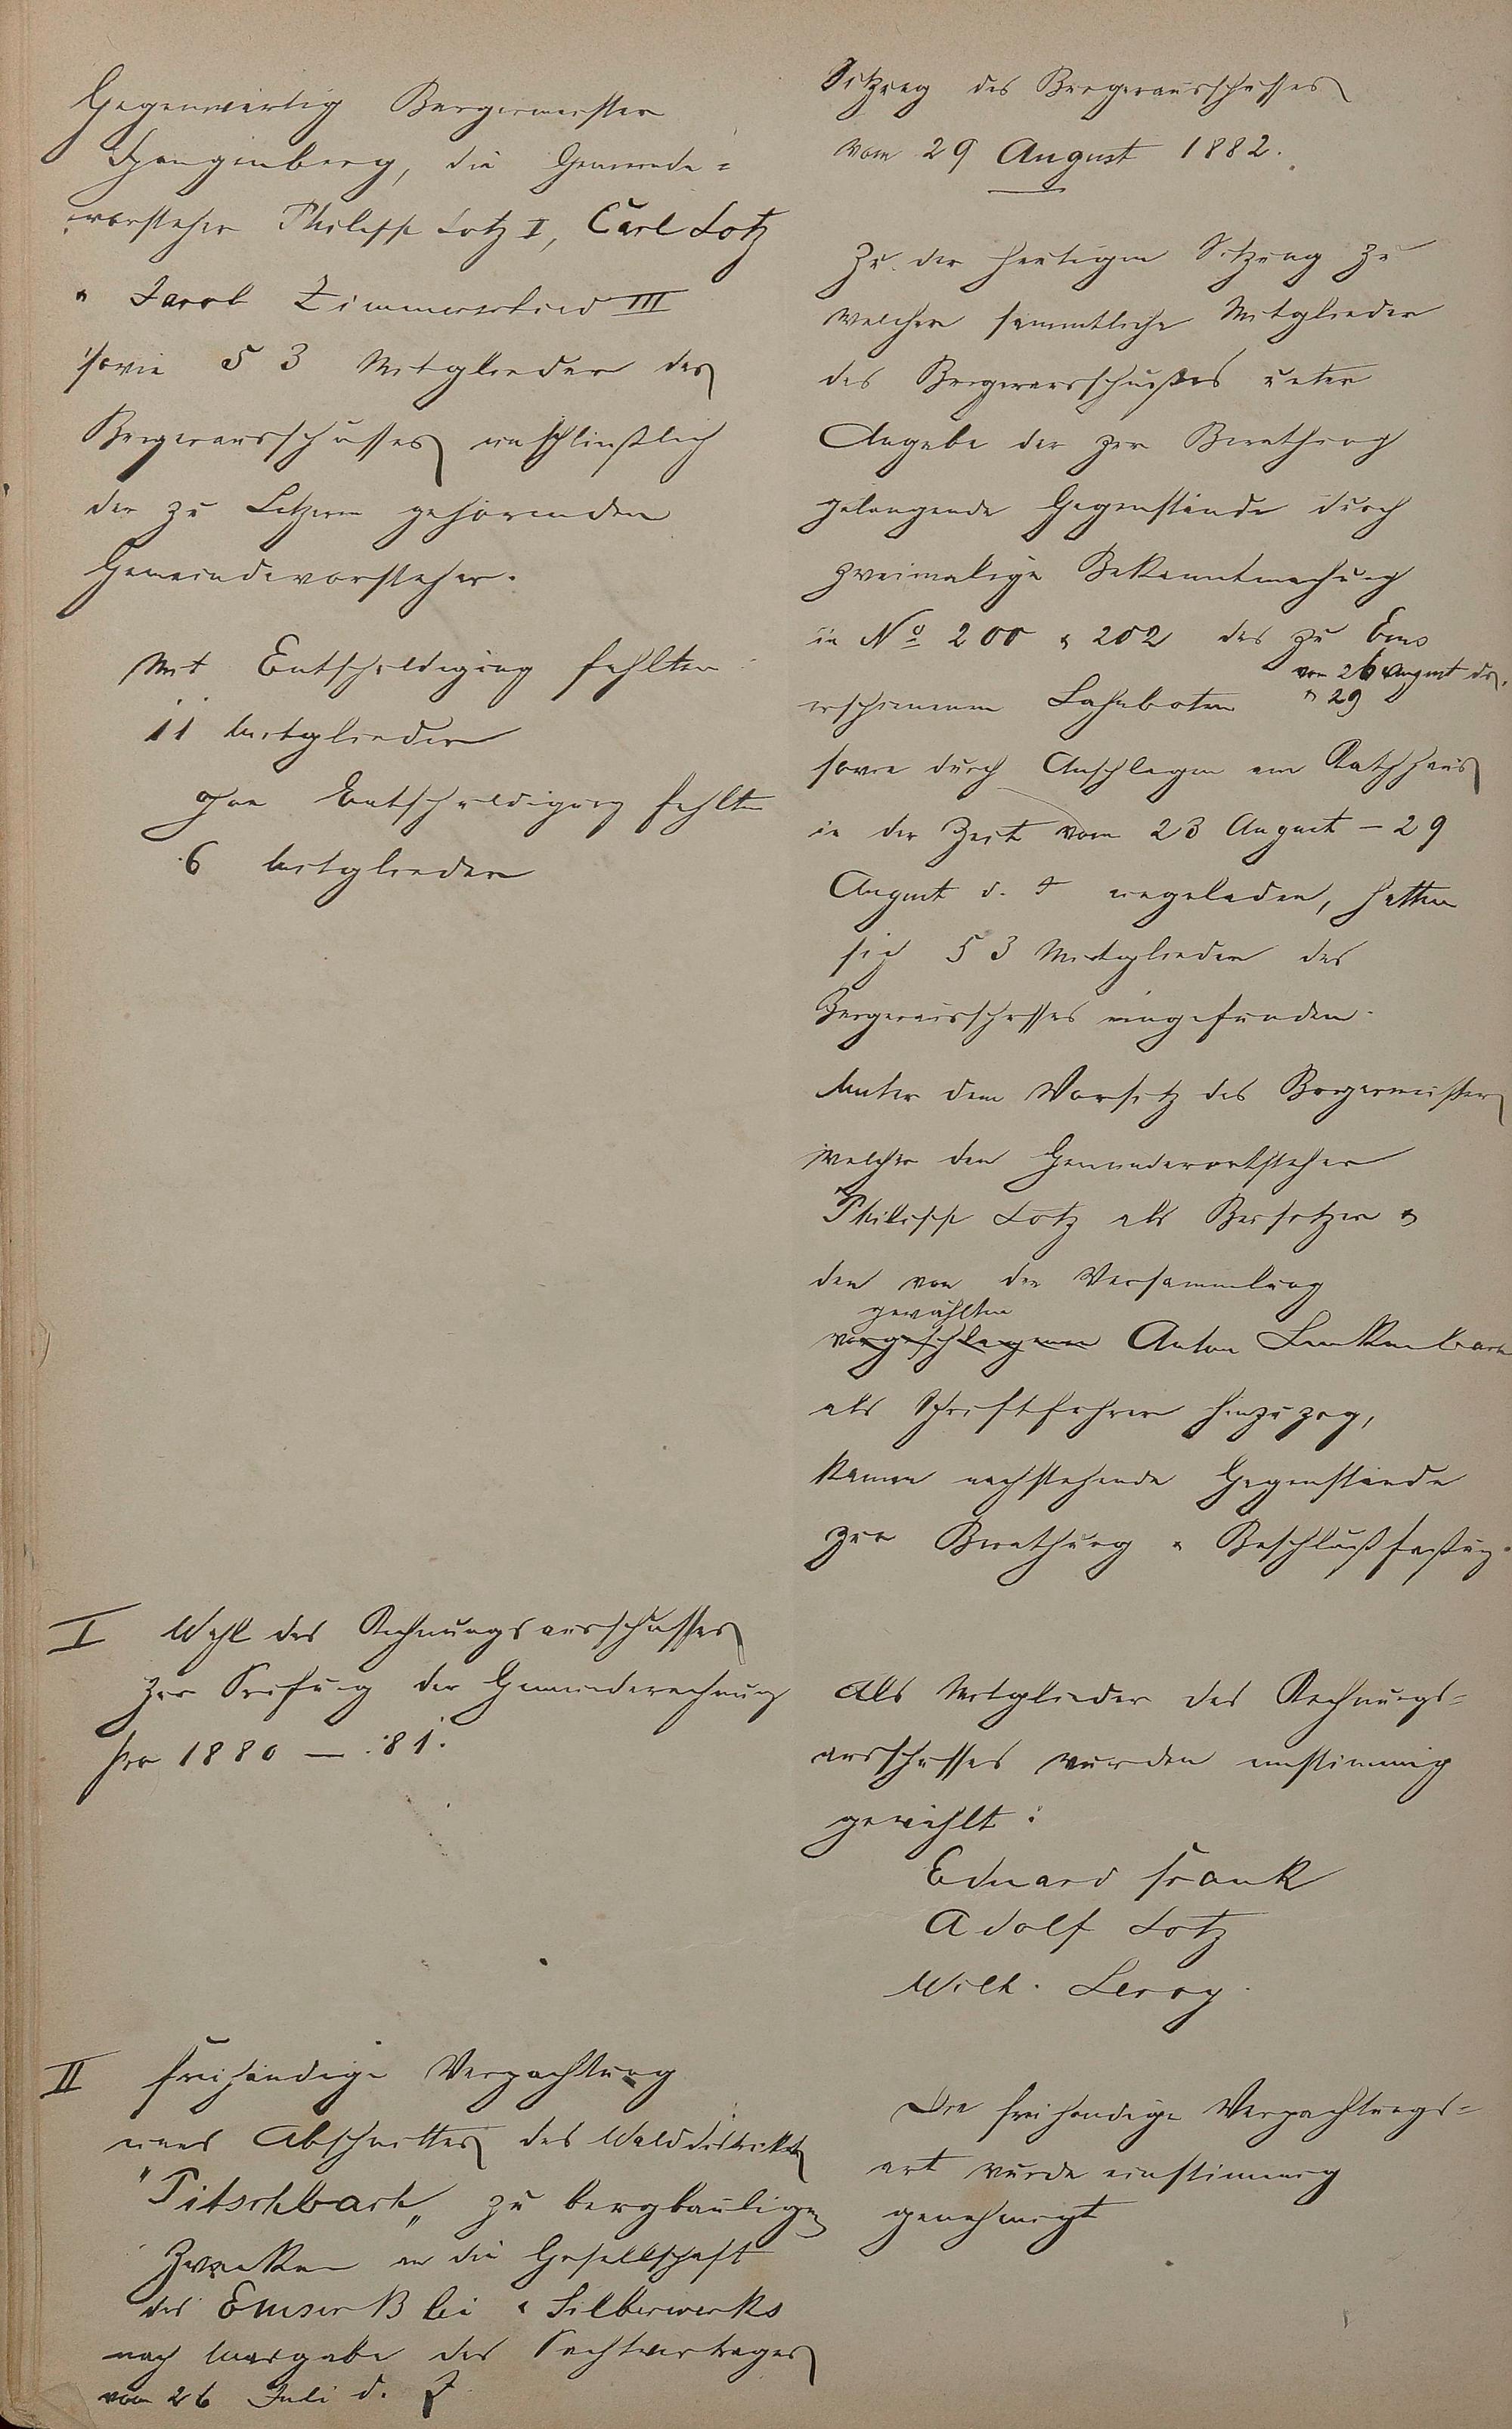 Gegenwärtig Bürgermeister
Spangenberg, die Gemeinde=
vorsteher Philipp Lotz I, Carl Lotz
u Jacob Zimmerschied III
sowie 53 Mitglieder des
Bürgerausschusses einschließlich
der zu Letzerm gehörenden
Gemeindevorsteher.
Mit Entschuldigung fehlten
11 Mitglieder
Ohne Entschuldigung fehlten
6 Mitglieder
I Wahl des Rechnungsausschusses
zur Prüfung der Gemeinderechnung
pro 1880 — 81.
II Freihändige Verpachtung
eines Abschnittes des Walddistrikts
"Pitschbach" zu bergbaulichen
Zwecken an die Gesellschaft
des Emser Blei u Silberwerks
nach Maasgabe des Pachtvertrages
vom 26 Juli d. J
Sitzung des Bürgerausschusses
vom 29 August 1882.
Zu der heutigen Sitzung zu
welcher sämmtliche Mitglieder
des Bürgerausschußes unter
Angabe der zur Berathung
gelangende Gegenstände durch
zweimalige Bekanntmachung
in No 200 u 202 des zu Ems
vom 26 August ds.
erschienenen Lahnboten u 29
sowie durch Anschlagen am Rathhaus
in der Zeit vom 23 August – 29
August d. J eingeladen, hatten
sich 53 Mitglieder des
Bürgerausschusses eingefunden.
Unter dem Vorsitz des Bürgermeisters
welcher den Gemeindevorsteher
Philipp Lotz als Beisitzer u
den von der Versammlung
gewählten
vorgeschlagenen Anton Linkenbach
als Schriftführer hinzuzog,
kamen nachstehende Gegenstände
zur Berathung u Beschlußfaßung.
Als Mitglieder des Rechnungs=
ausschusses wurden einstimmig
gewählt:
Eduard Frank
Adolf Lotz
Wilh. Leroy.
Die freihändige Verpachtungs=
art wurde einstimmig
genehmigt